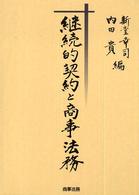 新堂幸司
内田貴 編
継続的契約と商事法務
商事法務